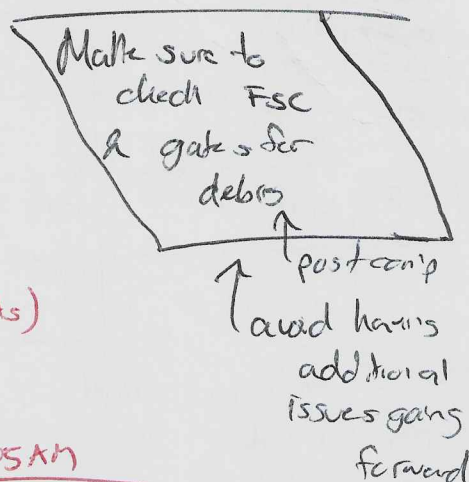 Make sure to
check FSC
& gates for
debris
post comp
avoid having
additional
issues going
forward
s)
5AM